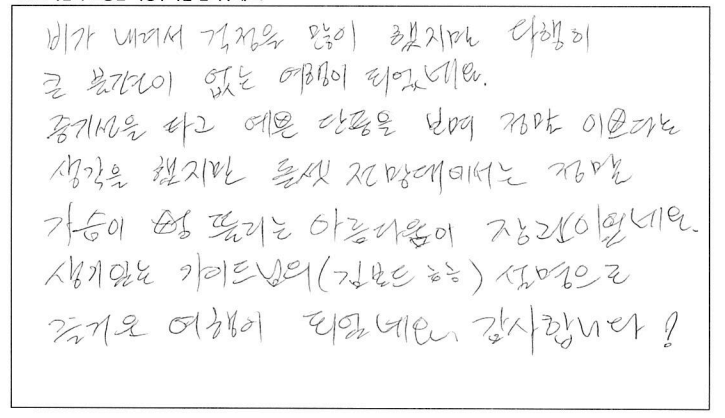 비가 내려서 걱정을 많이 했지만 다행히
큰 불편이 없는 여행이 되었네요.
증기선을 타고 예쁜 단풍을 보며 정말 이쁘다는
생각을 했지만 돌셋 전망대에서는 정말
가슴이 뻥 뚫리는 아름다움이 장관이였네요.
생기있는 가이드님의( ) 설명으로
즐거운 여행이 되었네요, 감사합니다!